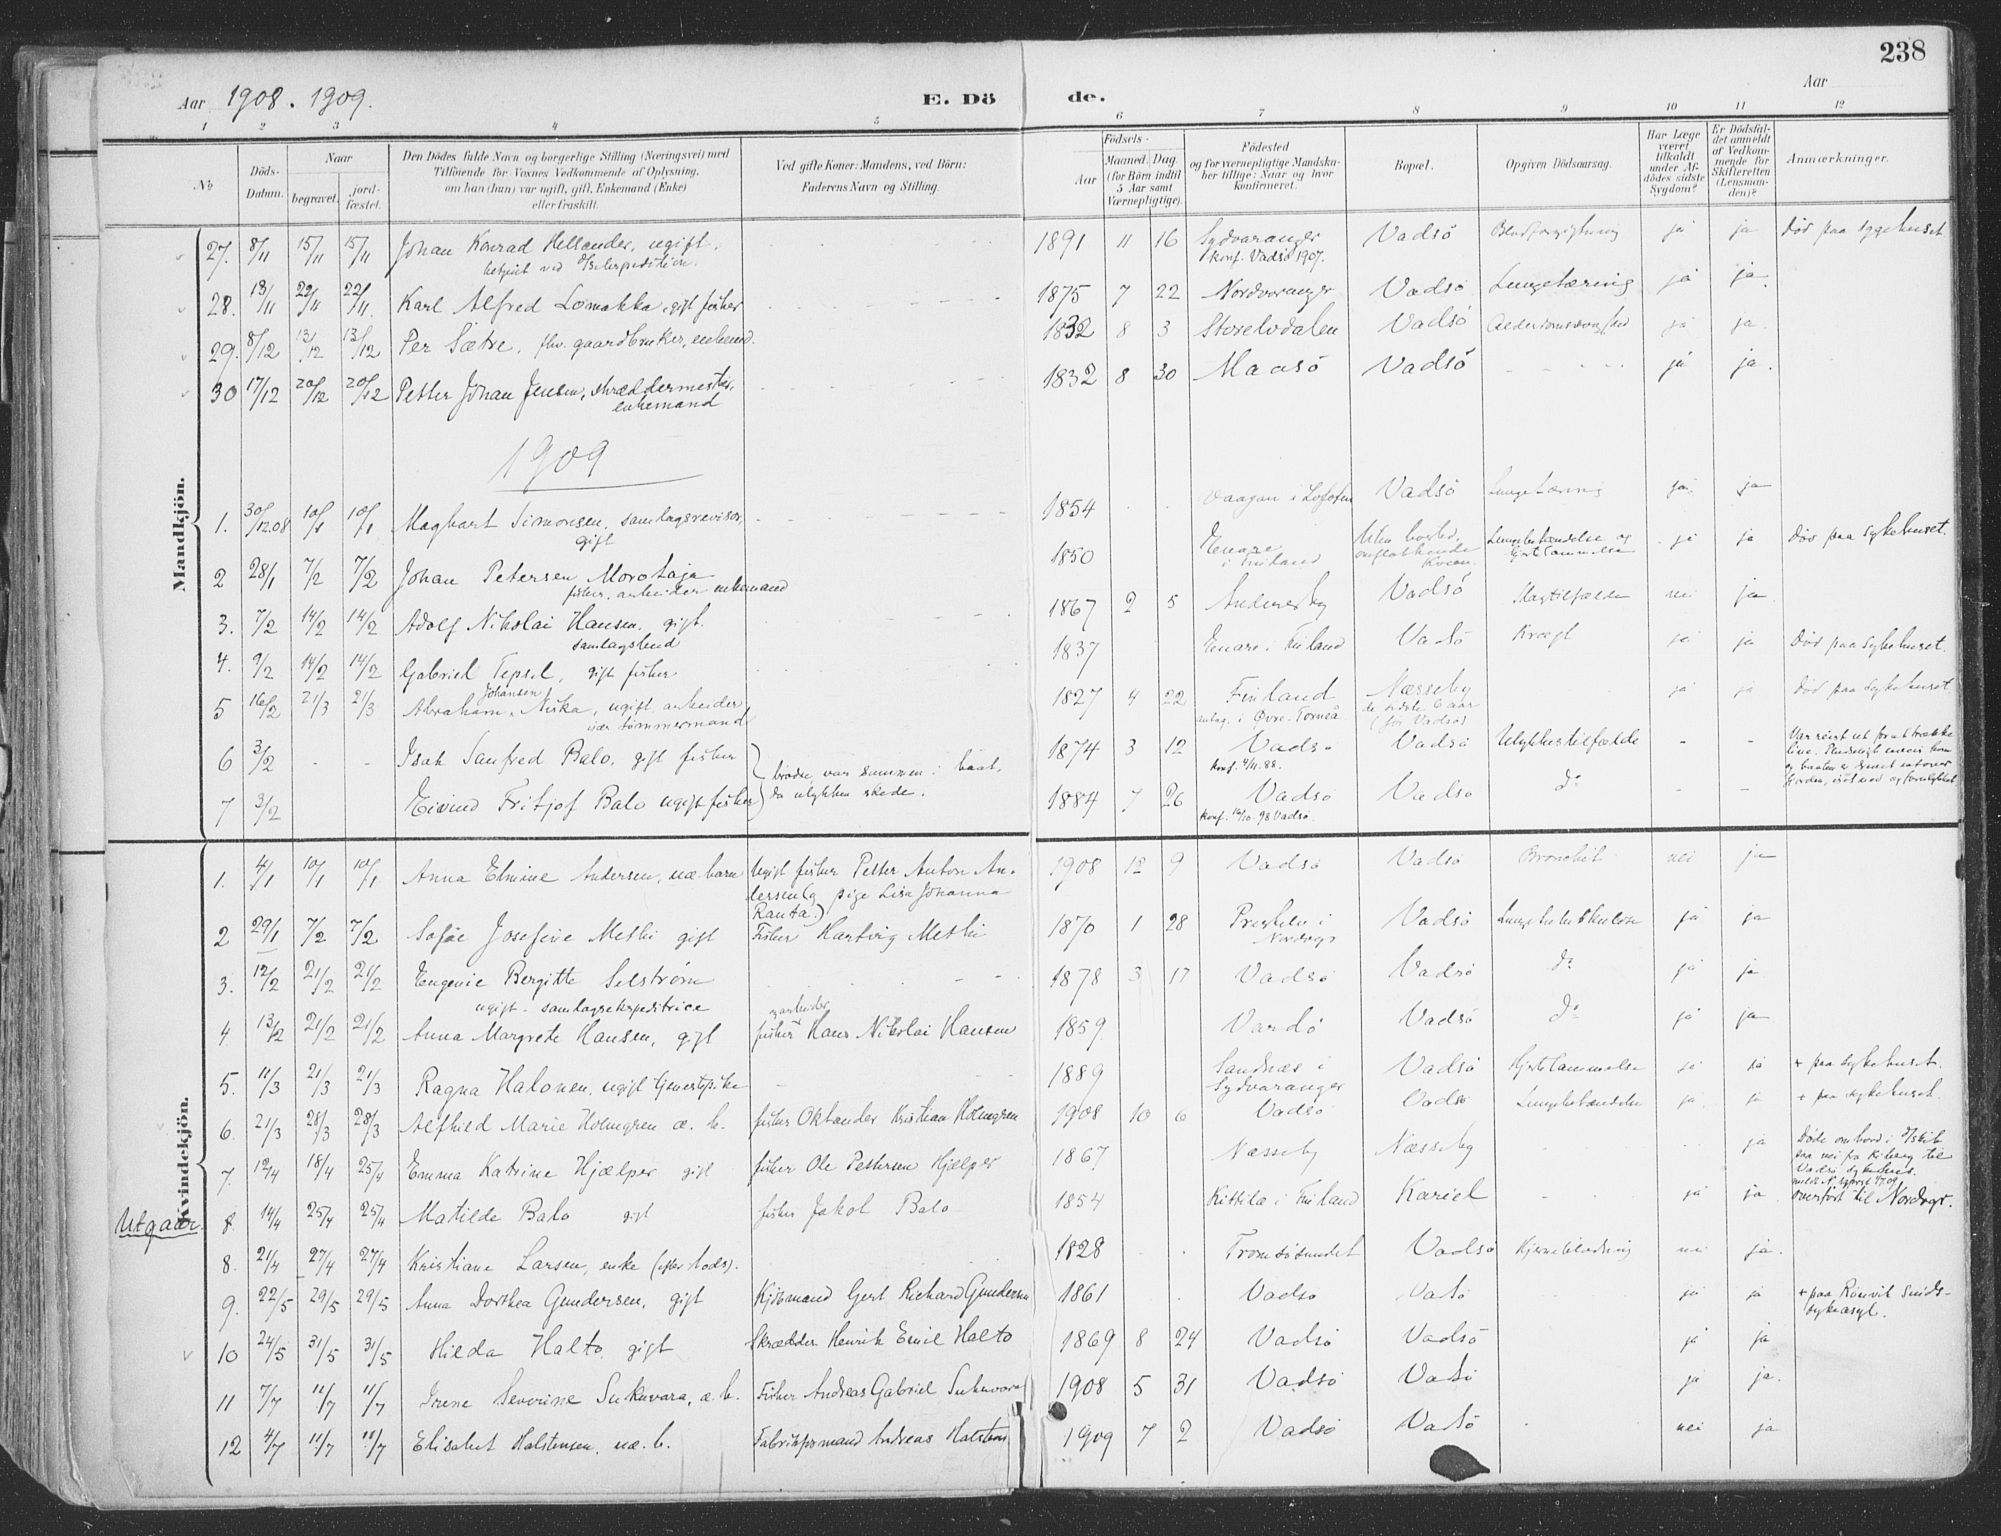 238
Aar 1908. 1909. E. Dö de. Aar
1 2 3 4 5 6 7 8 9 10 11 12
No
Döds-Datum.
Naar
begravet.
jordfæstet.
Den Dödes fulde Navn og borgerlige Stilling (Næringsvei) med
Tilföiende for Voxnes Vedkommende af Oplysning,
om han (hun) var ugift, gift, Enkemand (Enke)
eller fraskilt.
Ved gifte Koner: Mandens, ved Börn:
Faderens Navn og Stilling.
Födsels-
Aar
Maaned. Dag.
(for Börn indtil
5 Aar samt
Værnepligtige).
Födested
og for værnepligtige Mandska-
ber tillige: Naar og hvor
konfirmeret.
Bopæl.
Opgiven Dödsaarsag.
Har Læge
været
tilkaldt
under Af-
dødes sidste
Sygdom?
Er Dödsfal-
det anmeldt
af Vedkom-
mende for
Skifteretten
(Lensman-
den)?
Anmærkninger.
Mandkjön.
27. 8/11 15/11 15/11 Johan Konrad Hellander, ugift, 1891 11 16 Sydvaranger Vadsö Blodforgiftning ja ja Död paa sygehuset
betjent ved konf. Vadsö 1907.
28. 13/11 22/11 22/11 Karl Alfred Lomakka, gift fisker 1875 7 22 Nordvaranger Vadsö Lungetæring ja ja.
29. 8/12 13/12 13/12 Per Sætre, fhv. gaardbruker, enkemd. 1832 8 3 Storelvdalen Vadsö Alderdomssvaghed ja ja.
30 17/12 20/12 20/12 Petter Johan Jensen, skræddermester, 1832 8 30 Maasö Vadsö ja ja.
enkemand
1909
1. 30/12.08 10/1 10/1 Magbart Simonsen, samlagsrevisor, 1854 Vaagan i Lofoten Vadsö Lungetæring ja ja
gift
2 28/1 7/2 7/2 Johan Petersen Morotaja 1850 Enare i Finland Uten bosted, omflakkende Kvæn. Lungebetændelse og Hjertelammelse ja ja Död paa Sykehuset.
fisker, arbeider enkemand
3. 7/2 14/2 14/2 Adolf Nikolai Hansen, gift 1867 2 5 Andersby Vadsö Slagtilfælde nei ja
samlagsbud
4. 9/2 14/2 14/2 Gabriel Tepsel, gift fisker 1837 Enare i Finland Vadsö Kræft ja ja Död paa Sykehuset.
5 16/2 21/3 21/3 Abraham Johansen Niska, ugift, arbeider 1827 4 22 Finland Næsseby ja ja Död paa Sykehuset
især tömmermand antag. i Øvre-Torneå de sidste 6 aar (för Vadsö)
6 3/2 - - Isak Sanfred Balo, gift fisker 1874 3 12 Vadsö Vadsö Ulykkestilfælde - -
konf. 4/11.88.
brødre, var sammen i baat,
da ulykken skede.
7 3/2 Eivind Fritjof Balo ugift fisker 1884 7 26 Vadsö Vadsö do - -
konf. 16/10-98 Vadsö.
Var reist ut for at trække
line.
Kvindekjön.
1. 4/1 10/1 10/1 Anna Elmine Andersen, uæ. barn Ugift fisker Petter Anton An- 1908 12 9 Vadsö Vadsö Bronchit nei ja
dersen (og pige Lisa Johanna
Ranta.)
2 29/1 7/2 7/2 Sofie Josefine Methi gift Fisker Hartvig Methi 1870 1 28 Vadsö Lungetuberkulose ja ja
3. 12/2 21/2 21/2 Eugenie Bergitte Selström 1878 3 17 Vadsö Vadsö do ja ja
ugift - samlagsekspeditrice
4. 13/2 21/2 21/2 Anna Margrete Hansen, gift fisker arbeider Hans Nikolai Hansen 1859. Vardö Vadsö do ja ja
5. 11/3 21/3 21/3 Ragna Halonen, ugift tjenestpike - 1889 Sandnæs i Sydvaranger Vadsö Hjertelammelse ja ja + paa Sykehuset.
6. 21/3 28/3 28/3 Alfhild Marie Holmgren æ. b. fisker Oktander Kristian Holmgren 1908 10 6 Vadsö Vadsö Lungebetændelse ja ja + paa sykehuset.
7. 12/4 18/4 25/4 Emma Katrine Hjælper gift fisker Ole Pettersen Hjelper 1867 Næsseby Næsseby ja Döde ombord i d/skib
paa vei fra Kiberg til
Vadsö sykehus.
Utgaar. 8. 14/4 25/4 25/4 Matilde Balo gift fisker Jakob Balo 1854 Kittilæ i Finland Kariel ja ja overfört til Nordvgr.
8. 21/4 27/4 27/4 Kristiane Larsen, enke (efter Mads). 1828 Tromsösundet Vadsö Hjerneblødning nei ja.
9. 22/5 29/5 29/5 Anna Dorthea Gundersen, gift Kjöbmand Gert Richard Gundersen 1861 Vadsö Vadsö ja ja + paa Rönvik sinds-
sykeasyl.
10 24/5 31/5 31/5 Hilda Halto, gift Skrædder Henrik Emil Halto 1869 8 24 Vadsö Vadsö ja ja
11 7/7 11/7 11/7 Irene Severine Sukuvara, æ. b. Fisker Andreas Gabriel Sukuvara 1908 5 31 Vadsö Vadsö ja ja.
12 4/7 11/7 11/7 Elisabet Halstensen. uæ. b. Fabrikformand Andreas Halstens 1909 7 2 Vadsö Vadsö nei ja